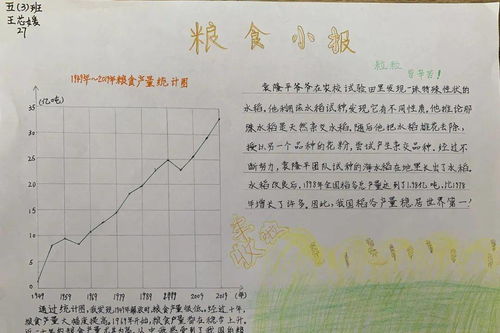 五(3)班
王芯媛
27
粮食小报
粒粒
皆辛苦!
1949年~2019年粮食产量统计图
(亿吨)
35
30
25
20
15
10
5
0
1949 1959 1969 1979 1989 1999 2009 2019 (年)
袁隆平爷爷在农校试验田里发现一株特殊性状的
水稻,他利用该水稻试种,发现它有不同性质,他推论那
株水稻是天然杂交水稻。随后他把水稻雄花去除,
授以另一个品种的花粉,尝试产生杂交品种。经过不
断努力,袁隆平团队试种的海水稻在地里长出了水稻。
水稻改良后,1998年全国稻谷总产量达到了1.98亿吨,比1978
年增长了许多。因此,我国稻谷产量稳居世界第一!
丰收啦
通过统计图,我发现,1949年解放时,粮食产量低。经过十年,
粮食产量大幅度提高。1969年开始,粮食产量都在稳步上升,